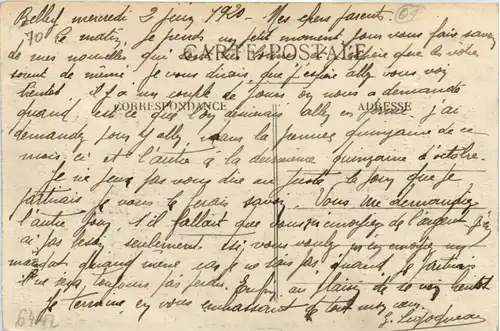 Belley mercredi 2 juin 1920 - Mes chers parents.
70 Ce matin, je prends un petit moment pour vous faire savoir
de mes nouvelles qui sont très bonnes et j'espère que les votre
soient de même. Je vous dirais que j'espère allez vous voir
CARTE POSTALE
bientot. Il y a un couple de jours on nous a demandé
CORRESPONDANCE
ADRESSE
quand est ce que l'on désirais allez en perme j'ai
demandez pour y allez dans la première quinzaine de ce
mois ci et l'autre a la dernière quinzaine d'octobre.
Je ne peux pas vous dire au juste le jour que je
partirais je vous le ferais savoir. Vous me demandiez
l'autre jour s'il fallait que vous m'envoyez de l'argent je n'en
ai pas besoin seulement si vous voulez m'en envoyez un
mandat quand même, car je ne sais pas quand je partirais
il ne sera toujours pas perdu. Enfin au plaisir de se voir bientot
Je termine en vous embrassant de tout mon cœur.
G.
6412